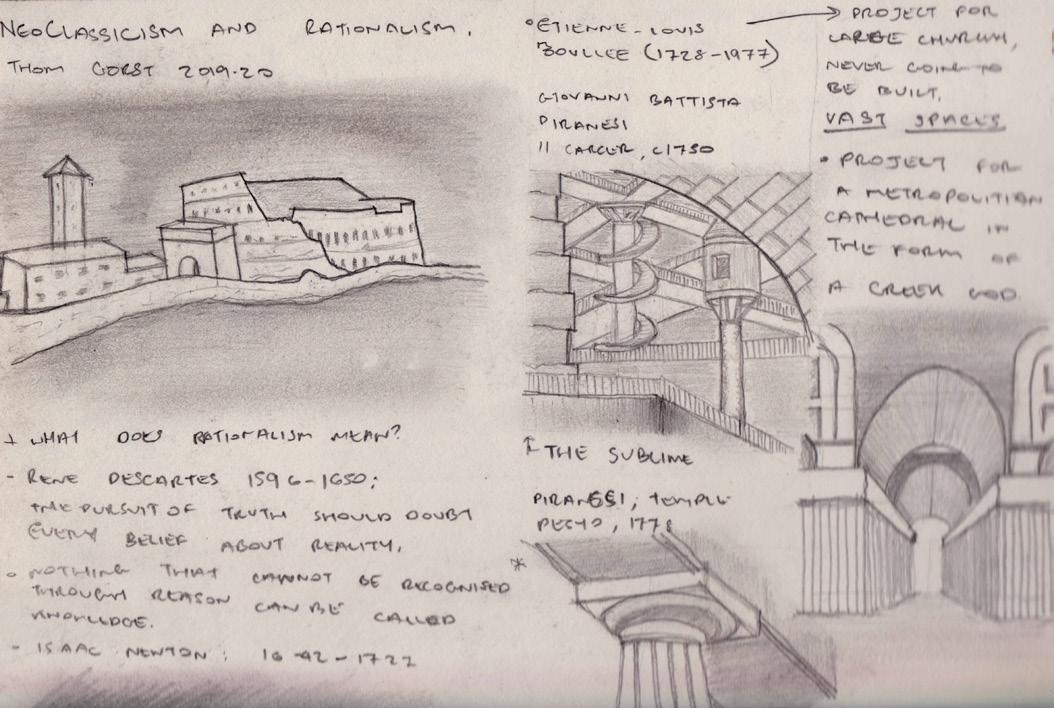 NEOCLASSICISM AND RATIONALISM.
THOM GORST 2019-20
+ WHAT DOES RATIONALISM MEAN?
- RENE DESCARTES 1596-1650;
THE PURSUIT OF TRUTH SHOULD DOUBT
EVERY BELIEF ABOUT REALITY.
• NOTHING THAT CANNOT BE RECOGNISED
THROUGH REASON CAN BE CALLED
KNOWLEDGE.
- ISAAC NEWTON: 1642-1727
• ETIENNE-LOUIS
BOULLEE (1728-1977)
GIOVANNI BATTISTA
PIRANESI
II CARCER, C1750
↑ THE SUBLIME
PIRANESI, TEMPLE
PESTO, 1778
*
→ PROJECT FOR
LARGE CHURCH,
NEVER GOING TO
BE BUILT.
VAST SPACES
• PROJECT FOR
A METROPOLITIAN
CATHEDRAL IN
THE FORM OF
A GREEK GOD.